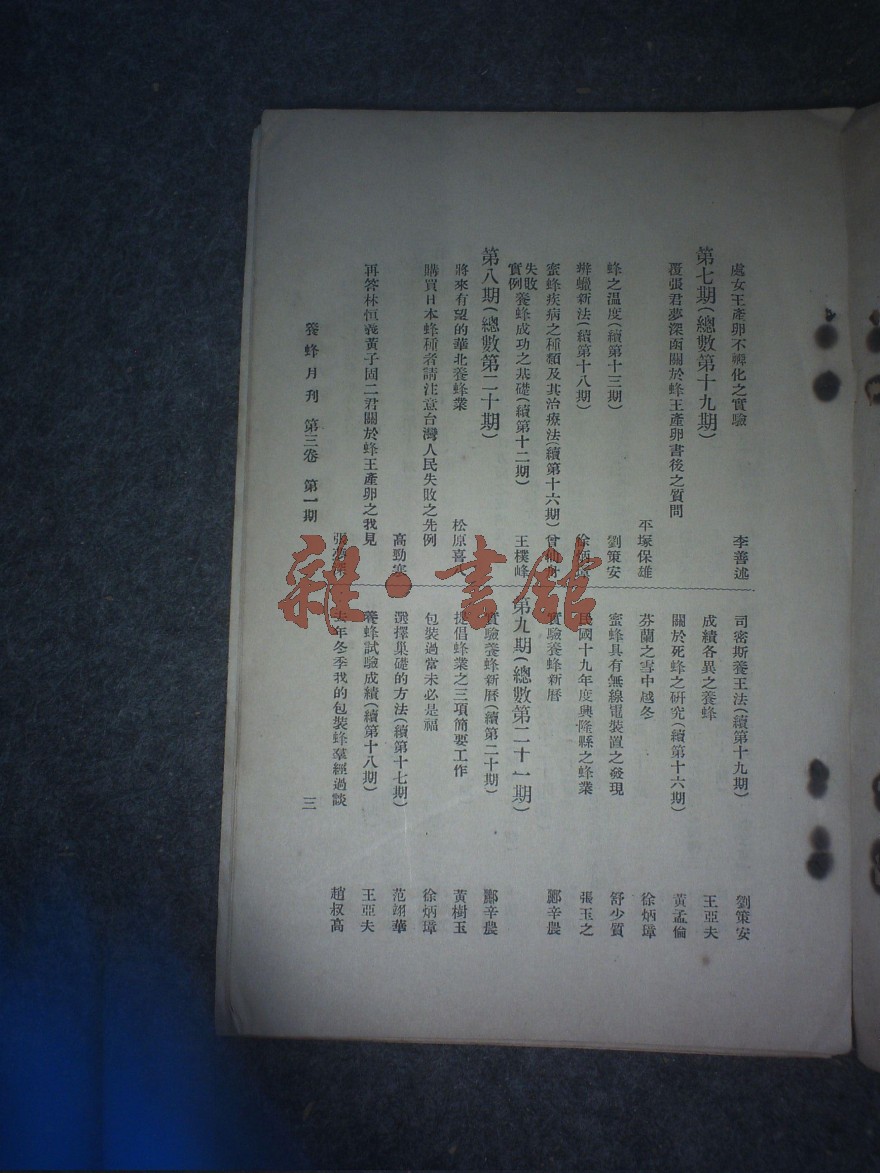 處女王產卵不孵化之實驗 李善述
第七期(總數第十九期)
覆張君夢深函關於蜂王產卵書後之質問
平塚保雄
蜂之溫度(續第十三期) 劉策安
辦蠟新法(續第十八期) 徐炳璋
蜜蜂疾病之種類及其治療法(續第十六期)
失敗實例養蜂成功之基礎(續第十二期) 王樸峰
第八期(總數第二十期)
將來有望的華北養蜂業 松原喜
購買日本蜂種者請注意台灣人民失敗之先例
高勁寒
再答林恒義黃子固二君關於蜂王產卵之我見
司密斯養王法(續第十九期) 劉策安
成績各異之養蜂 王亞夫
關於死蜂之研究(續第十六期) 黃孟倫
芬蘭之雪中越冬 徐炳璋
蜜蜂具有無線電裝置之發現 舒少質
民國十九年度興隆縣之蜂業 張玉之
實驗養蜂新曆 酈辛農
第九期(總數第二十一期)
實驗養蜂新曆(續第二十期) 酈辛農
提倡蜂業之三項簡要工作 黃樹玉
包裝過當未必是福 徐炳璋
選擇巢礎的方法(續第十七期) 范翊華
養蜂試驗成績(續第十八期) 王亞夫
去年冬季我的包裝蜂羣經過談 趙叔高
養蜂月刊 第三卷 第一期 三
雜·書館